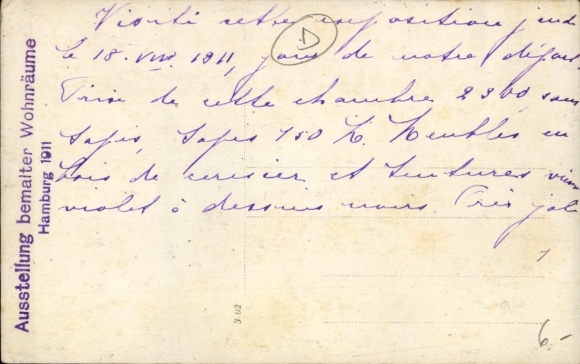 Visité cette exposition jeudi
le 18. VIII. 1911, jour de notre départ.
Prix de cette chambre 2300, sans
tapis, tapis 750 K. Meubles en
bois de cerisier et tentures
violet à dessins noirs. Très joli
D
Ausstellung bemalter Wohnräume
Hamburg 1911
3 02
6.-